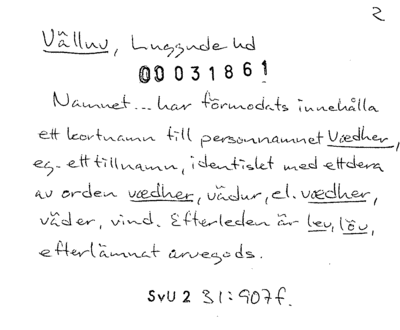 2
Välluv, Luggude hd
00031861
Namnet... har förmodats innehålla
ett kortnamn till personnamnet Vædher,
eg. ett tillnamn, identiskt med ettdera
av orden vædher, vädur, el. vædher,
väder, vind. Efterleden är lev, löv,
efterlämnat arvegods.
SvU 2 31:907f.